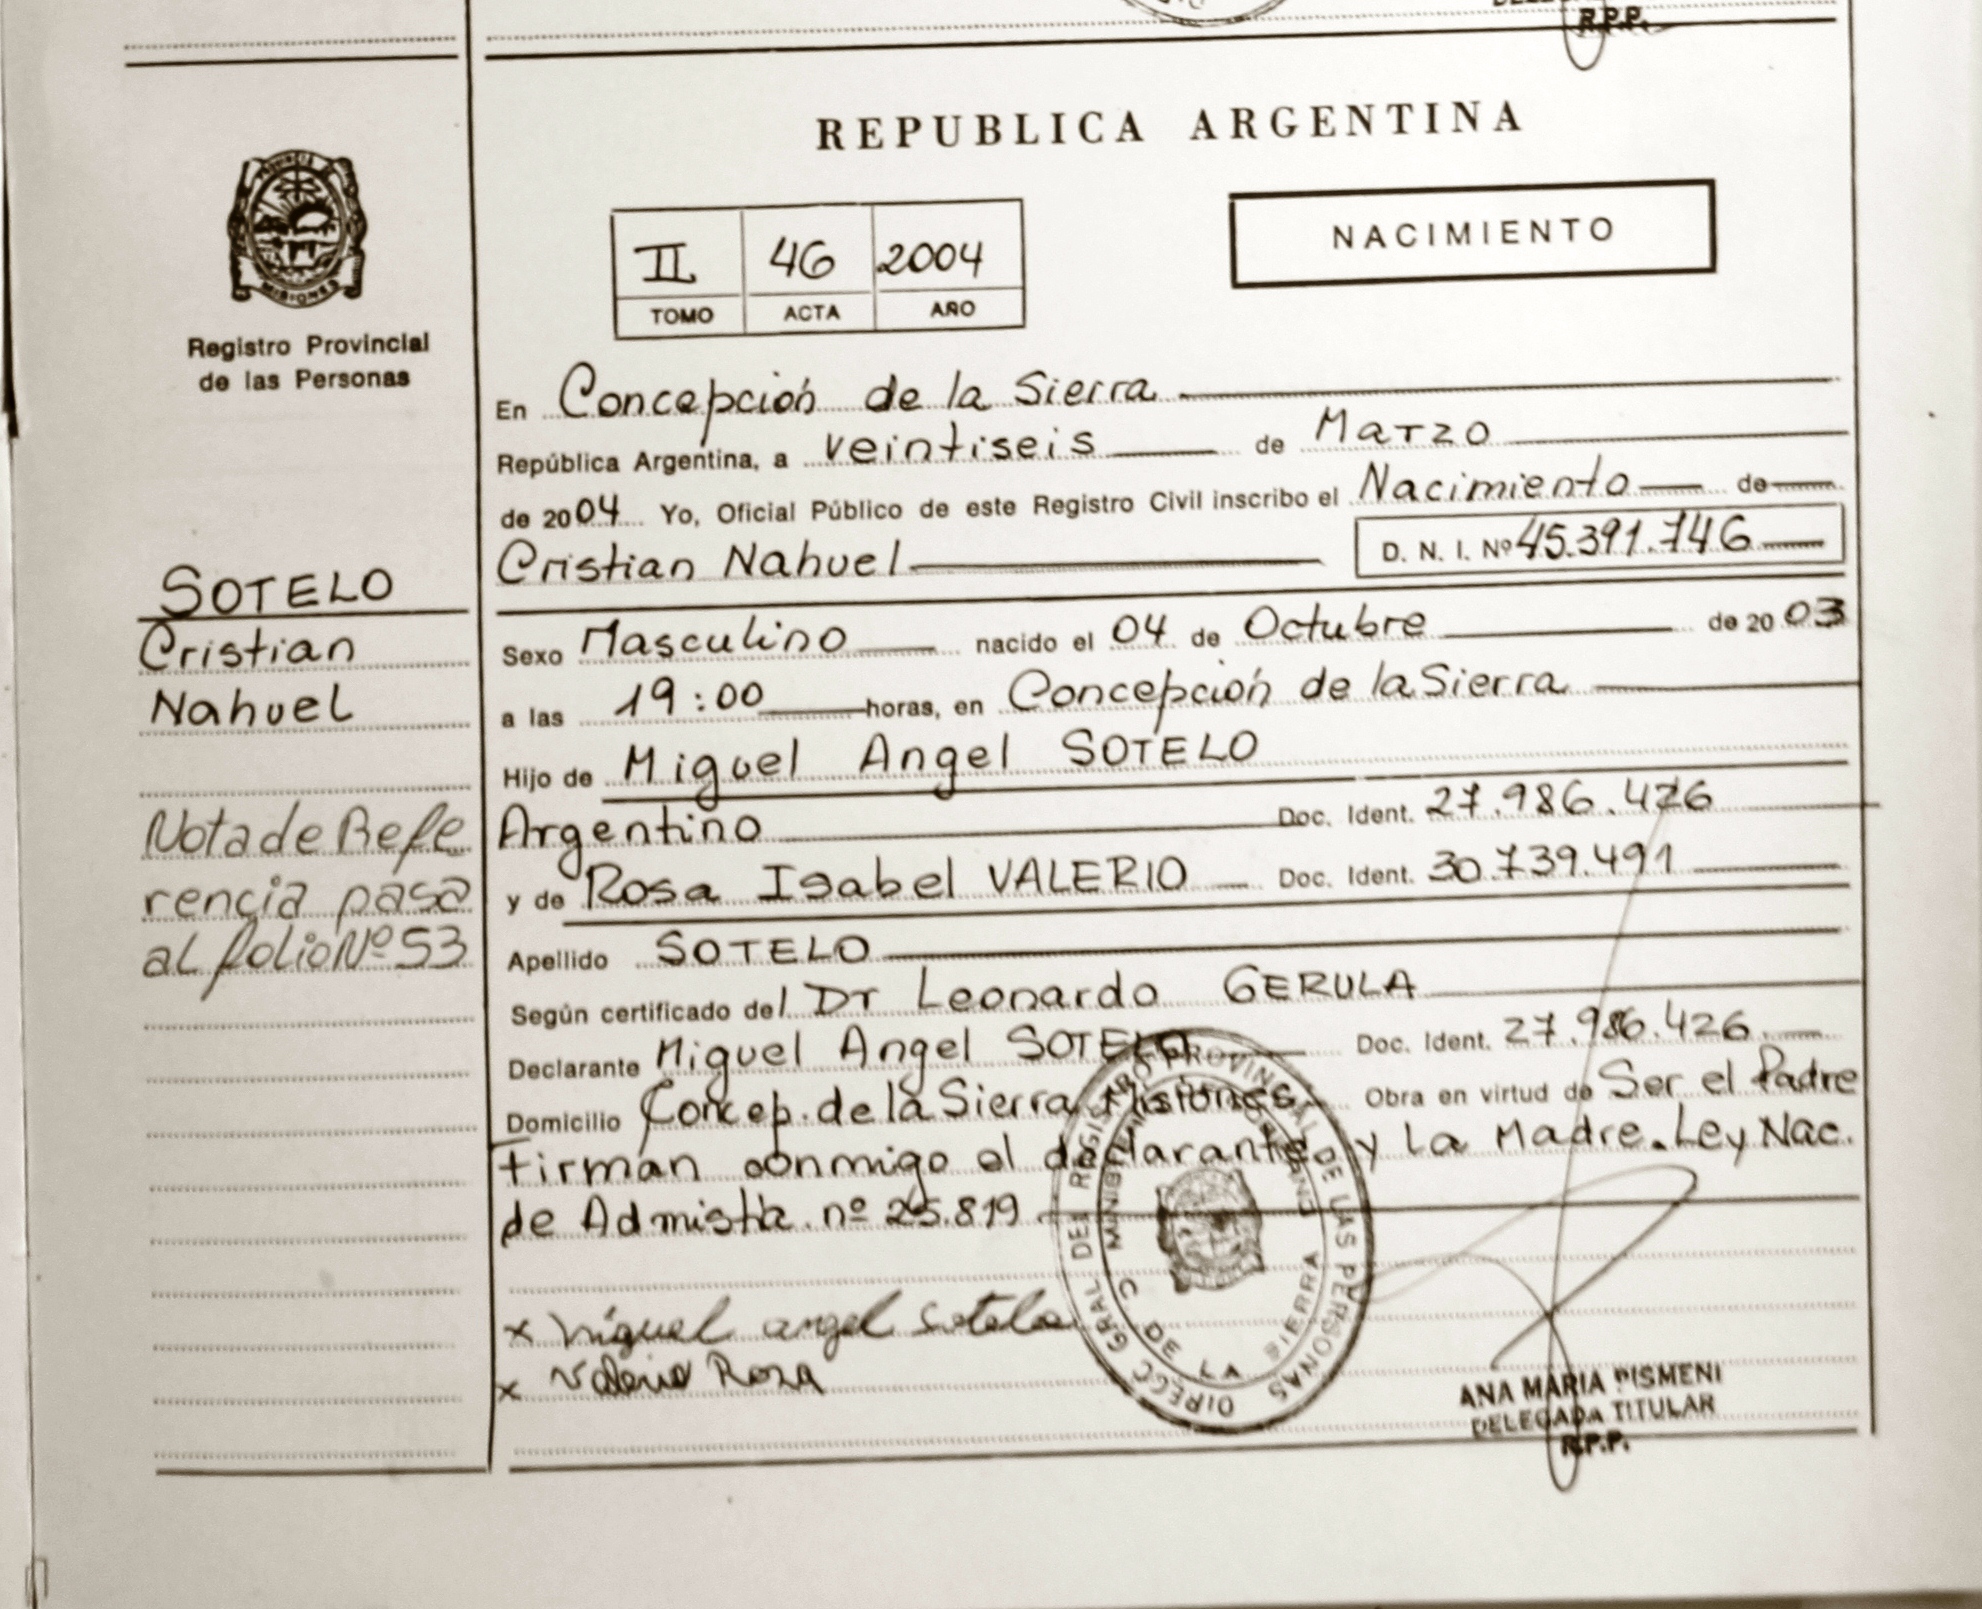 R.P.P.
REPUBLICA ARGENTINA
MISIONES
Registro Provincial
de las Personas
II 46 2004
TOMO ACTA AÑO
NACIMIENTO
En Concepción de la Sierra
República Argentina, a veintiseis de Marzo
de 2004 Yo, Oficial Público de este Registro Civil inscribo el Nacimiento de
Cristian Nahuel D. N. I. Nº 45.391.746
SOTELO
Cristian
Nahuel
Sexo Masculino nacido el 04 de Octubre de 2003
a las 19:00 horas, en Concepción de la Sierra
Hijo de Miguel Angel SOTELO
Argentino Doc. Ident. 27.986.426
y de Rosa Isabel VALERIO Doc. Ident. 30.739.491
Nota de Refe
rencia pasa
al folio Nº 53
Apellido SOTELO
Según certificado del Dr Leonardo GERULA
Declarante Miguel Angel SOTELO Doc. Ident. 27.986.426
Domicilio Concep. de la Sierra Misiones Obra en virtud de Ser el Padre
Firman conmigo el declarante y La Madre. Ley Nac.
de Admistía nº 25.819
x Miguel angel Sotelo
x Valerio Rosa
DIRECC GRAL DEL REGISTRO PROVINCIAL DE LAS PERSONAS
C. DE LA SIERRA
ANA MARIA PISMENI
DELEGADA TITULAR
R.P.P.